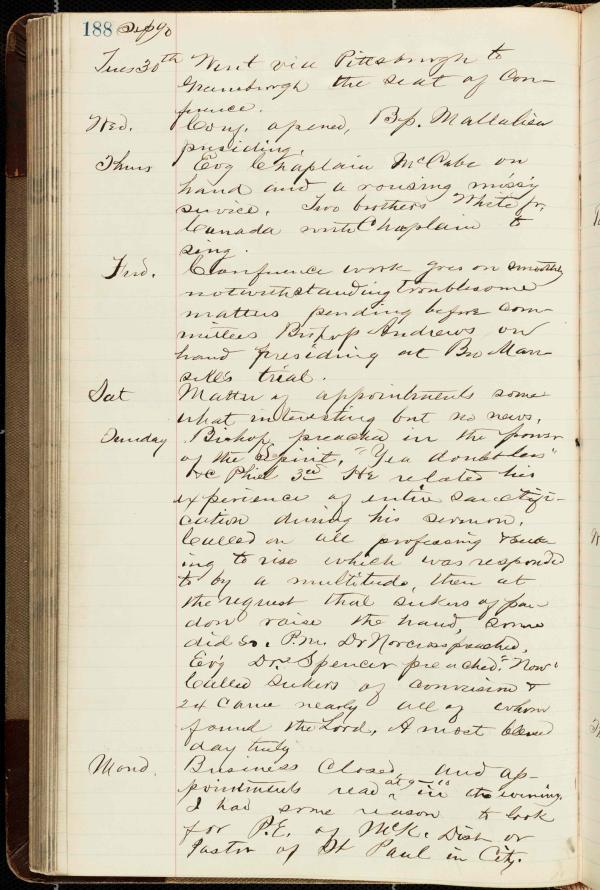 188 Sep 90
Tues 30th Went via Pittsburgh to
Greensburgh the seat of Con-
ference.
Wed. Conf. opened, Bp. Mallalieu
presiding.
Thurs Evg Chaplain McCabe on
hand and a rousing miss'y
service. Two brothers White fr.
Canada with Chaplain to
sing.
Frid. Conference work goes on smoothly
notwithstanding troublesome
matters pending before com-
mittees Bishop Andrews on
hand presiding at Bro Man-
sell's trial.
Sat Matter of appointments some
what interesting but no news.
Sunday Bishop preached in the power
of the Spirit, "Yea doubtless"
&c Phil 3rd He related his
experience of entire sanctifi-
cation during his sermon.
Called on all professing & seek-
ing to rise which was responded
to by a multitude, then at
the request that seekers of par-
don raise the hand, some
did so. P.M. Dr Norcross preached.
Ev'g Dr. Spencer preached. "Now"
Called seekers of conversion &
24 came nearly all of whom
found the Lord. A most blessed
day truly
Mond. Business Closed, and ap-
pointments read at 9- in the evening.
I had some reason to look
for P.E. of McK. Dist or
Pastor of St Paul in City.